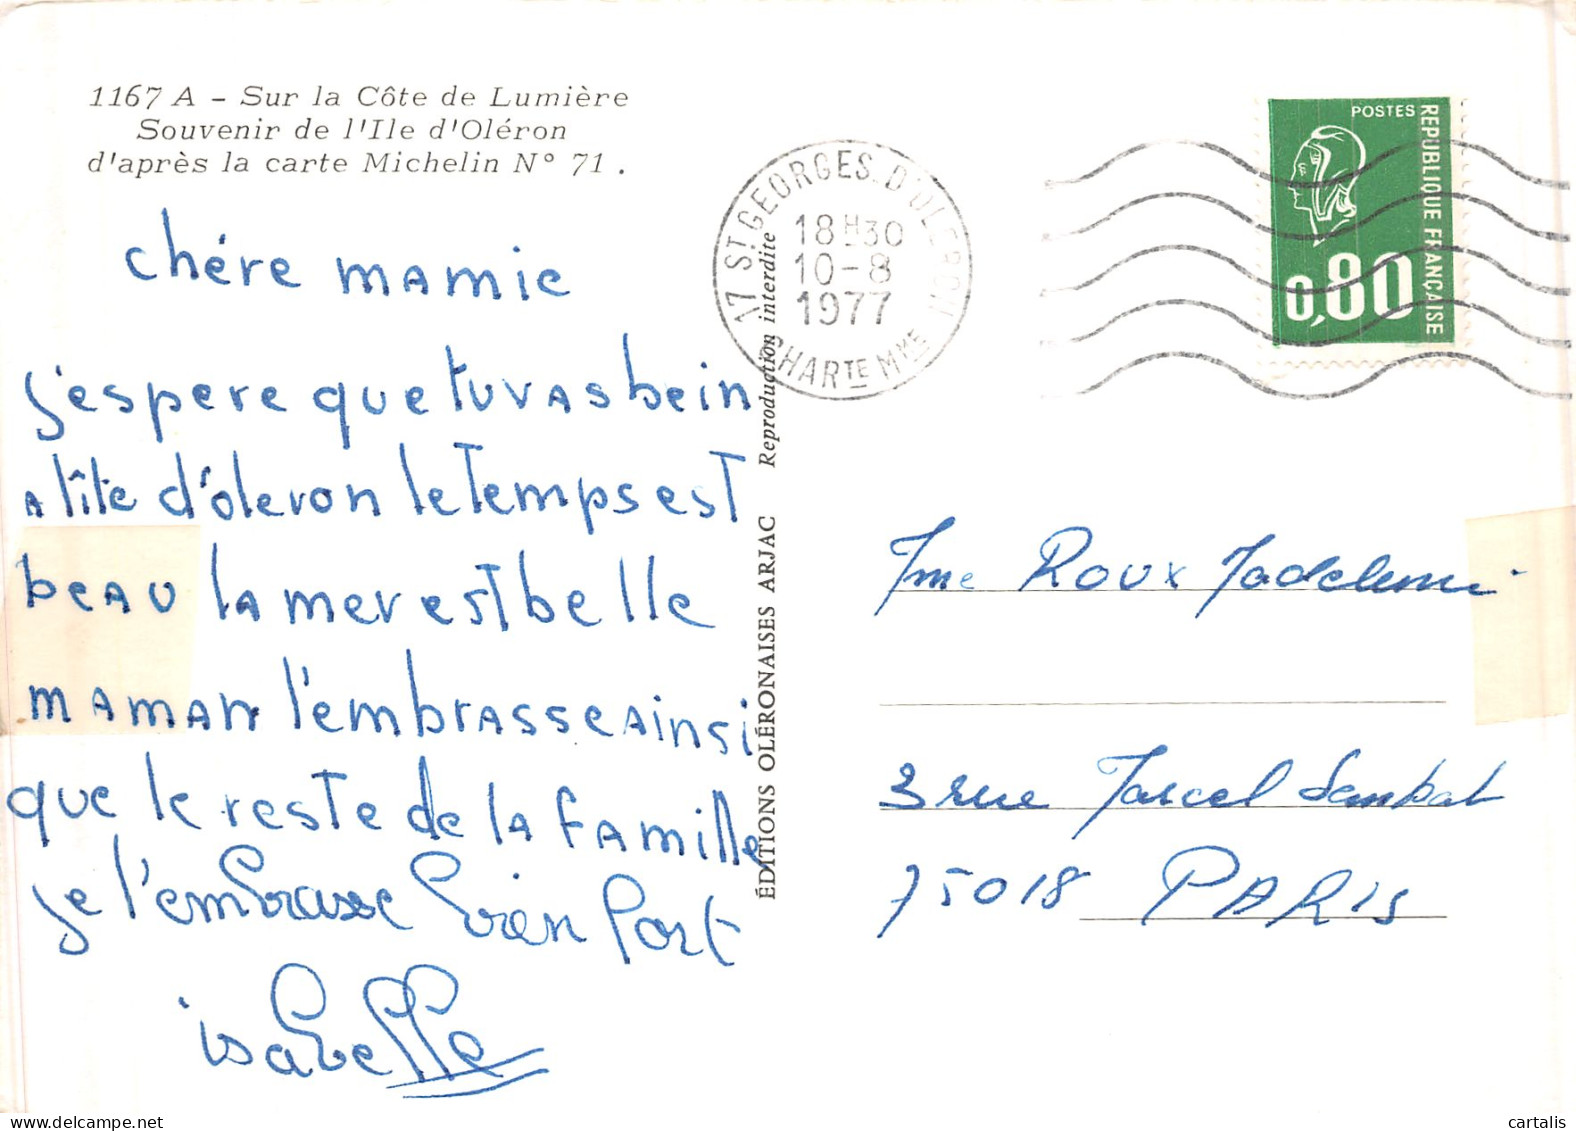 1167 A - Sur la Côte de Lumière
Souvenir de l'Ile d'Oléron
d'après la carte Michelin N° 71 .
chére mamie
j'espere que tu vas bein
a l'île d'oleron le temps est
beau la mer est belle
maman l'embrasse ainsi
que le reste de la famille
je l'embrasse bien fort
isabelle
Reproduction interdite
ÉDITIONS OLÉRONAISES ARJAC
17 ST GEORGES D'OLERON
18H30
10-8
1977
CHARTE MME
POSTES
REPUBLIQUE FRANÇAISE
0,80
Mme Roux
3 rue Marcel Sembat
75018 PARIS
cartalis
delcampe.net